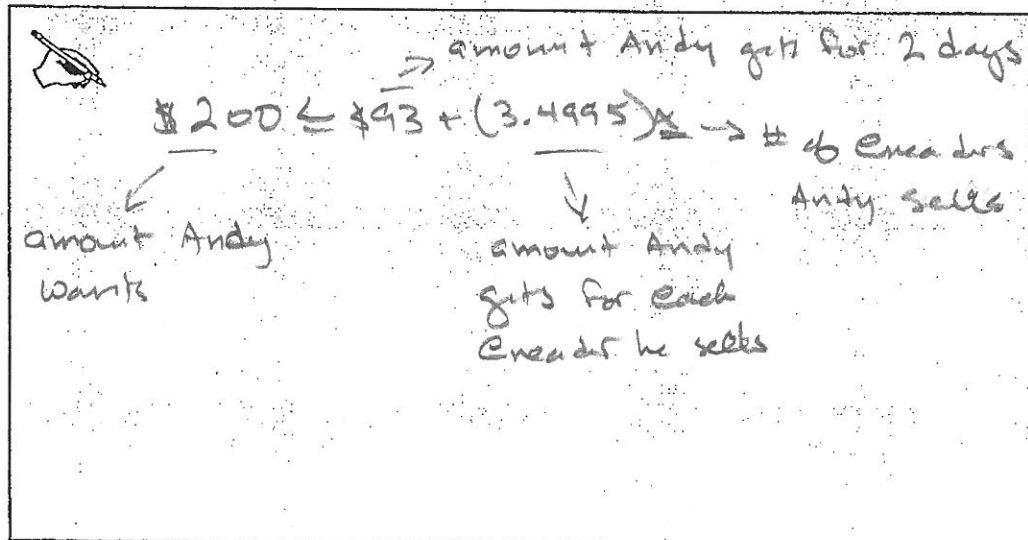 amount Andy gets for 2 days
$200 ≤ $93 + (3.4995)x → # of Ereaders
Andy sells
amount Andy
wants
amount Andy
gets for each
Ereader he sells